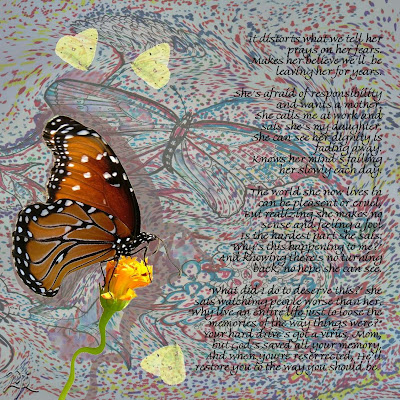 It distorts what we tell her
prays on her fears.
Makes her believe we'll be
leaving her for years.
She's afraid of responsibility
and wants a mother,
She calls me at work and
says she's my daughter.
She can see her dignity is
fading away.
Knows her mind's failing
her slowly each day.
The world she now lives in
can be pleasant or cruel,
But realizing she makes no
sense and feeling a fool
Is the hardest part she says,
"Why's this happening to me?"
And knowing there's no turning
back, no hope she can see.
"What did I do to deserve this?" she
says watching people worse than her.
Why live an entire life just to loose the
memories of the way things were?
Your hard drive's got a virus, Mom,
but God's saved all your memory,
And when you're resurrected, He'll
restore you to the way you should be.